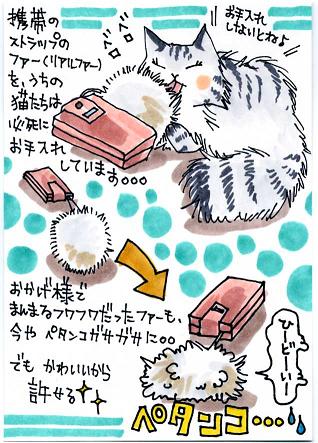 携帯の
ストラップの
ファー(リアルファー)
を、うちの
猫たちは
必死に
お手入れ
しています…
お手入れ
しないとね♪
ペロ
ペロ
おかげ様で
まんまるフワフワだったファーも、
今や ペタンコガサガサに…
でも かわいいから
許せる
ひどーいー
ペタンコ…